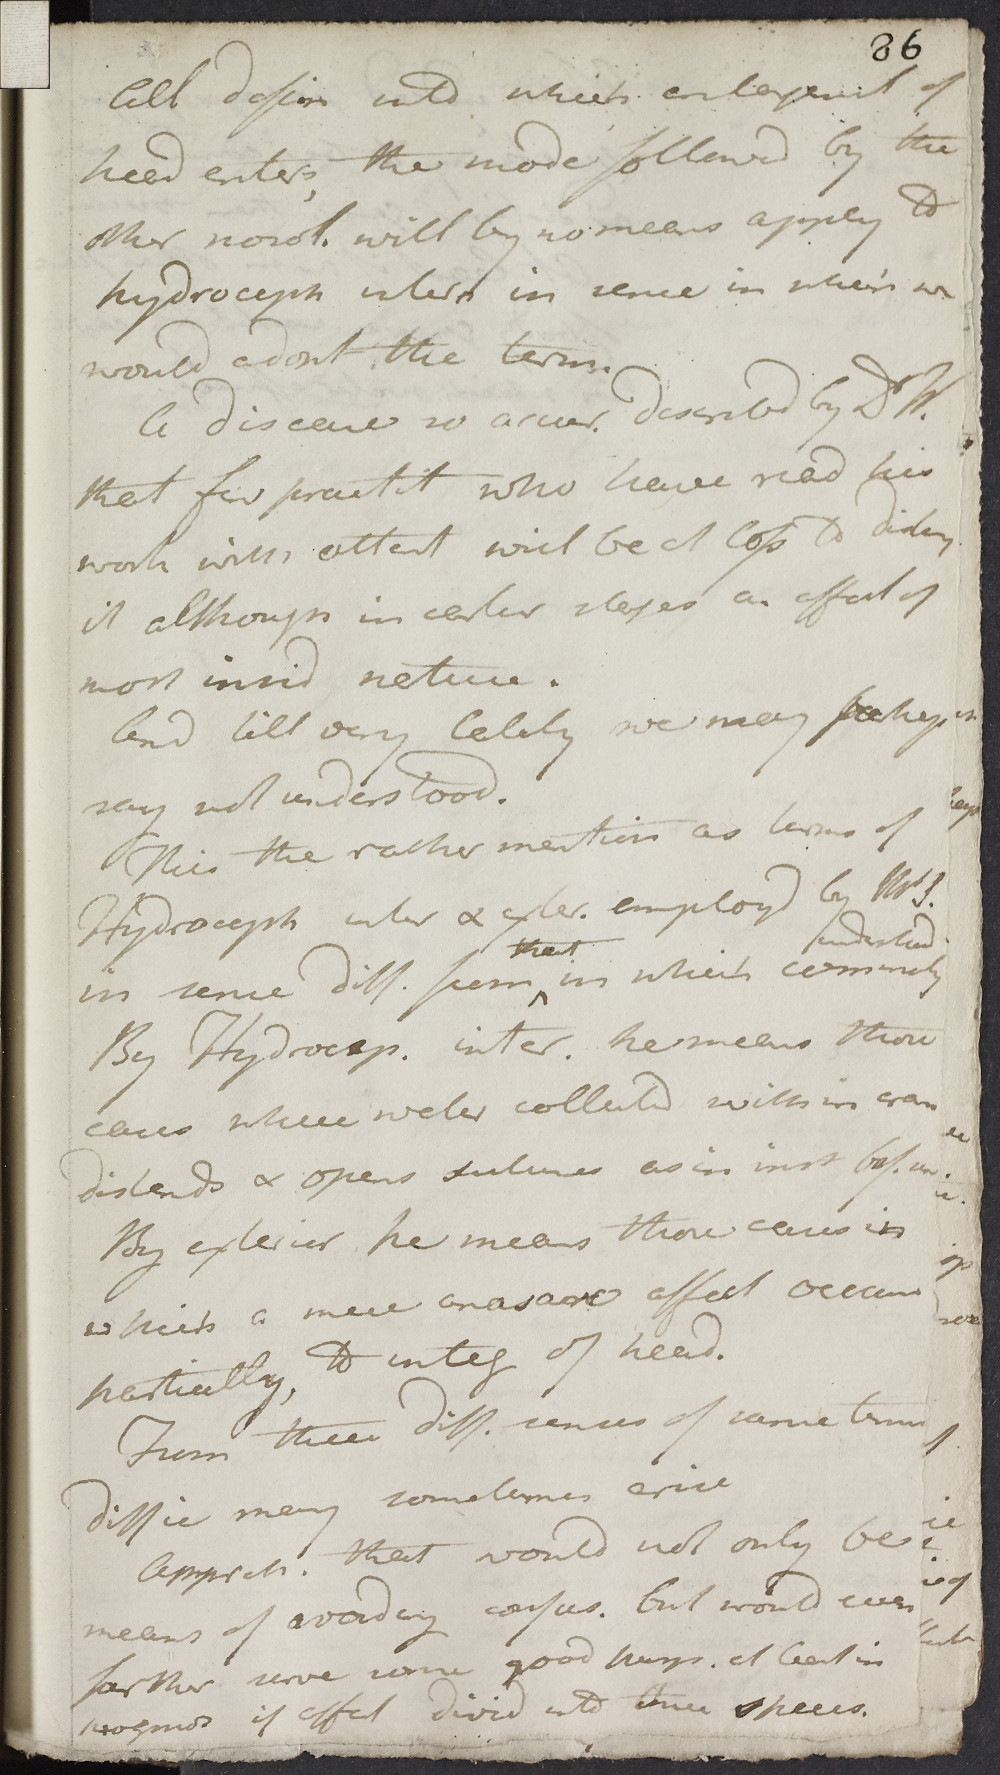 86
All defin into which enlargemt of
head enters, the mode followed by the
other nosol. will by no means apply to
hydroceph intern in sense in which we
would adopt the term.
A disease so accur. described by Dr W.
that few practit who have read his
work with attent will be at loss to disting
it although in earlier stages an affect of
most insid nature.
And till very lately we may perhaps
say not understood.
This the rather mention as terms of
Hydroceph inter & exter. employd by
understood
that
in sense diff. from ^ in which commonly
By Hydrocep. inter. he means those
cases where water collected within cran
distends & opens sutures as in inst bef. us.
By exterior he means those cases in
which a mere anasarc affect occurs
partially, to integ of head.
From these diff. senses of same term
diffic may sometimes arise
Appreh. that would not only be
means of avoiding confus. but would even
farther serve some good purp. at least in
prognos if affect divid into three species.